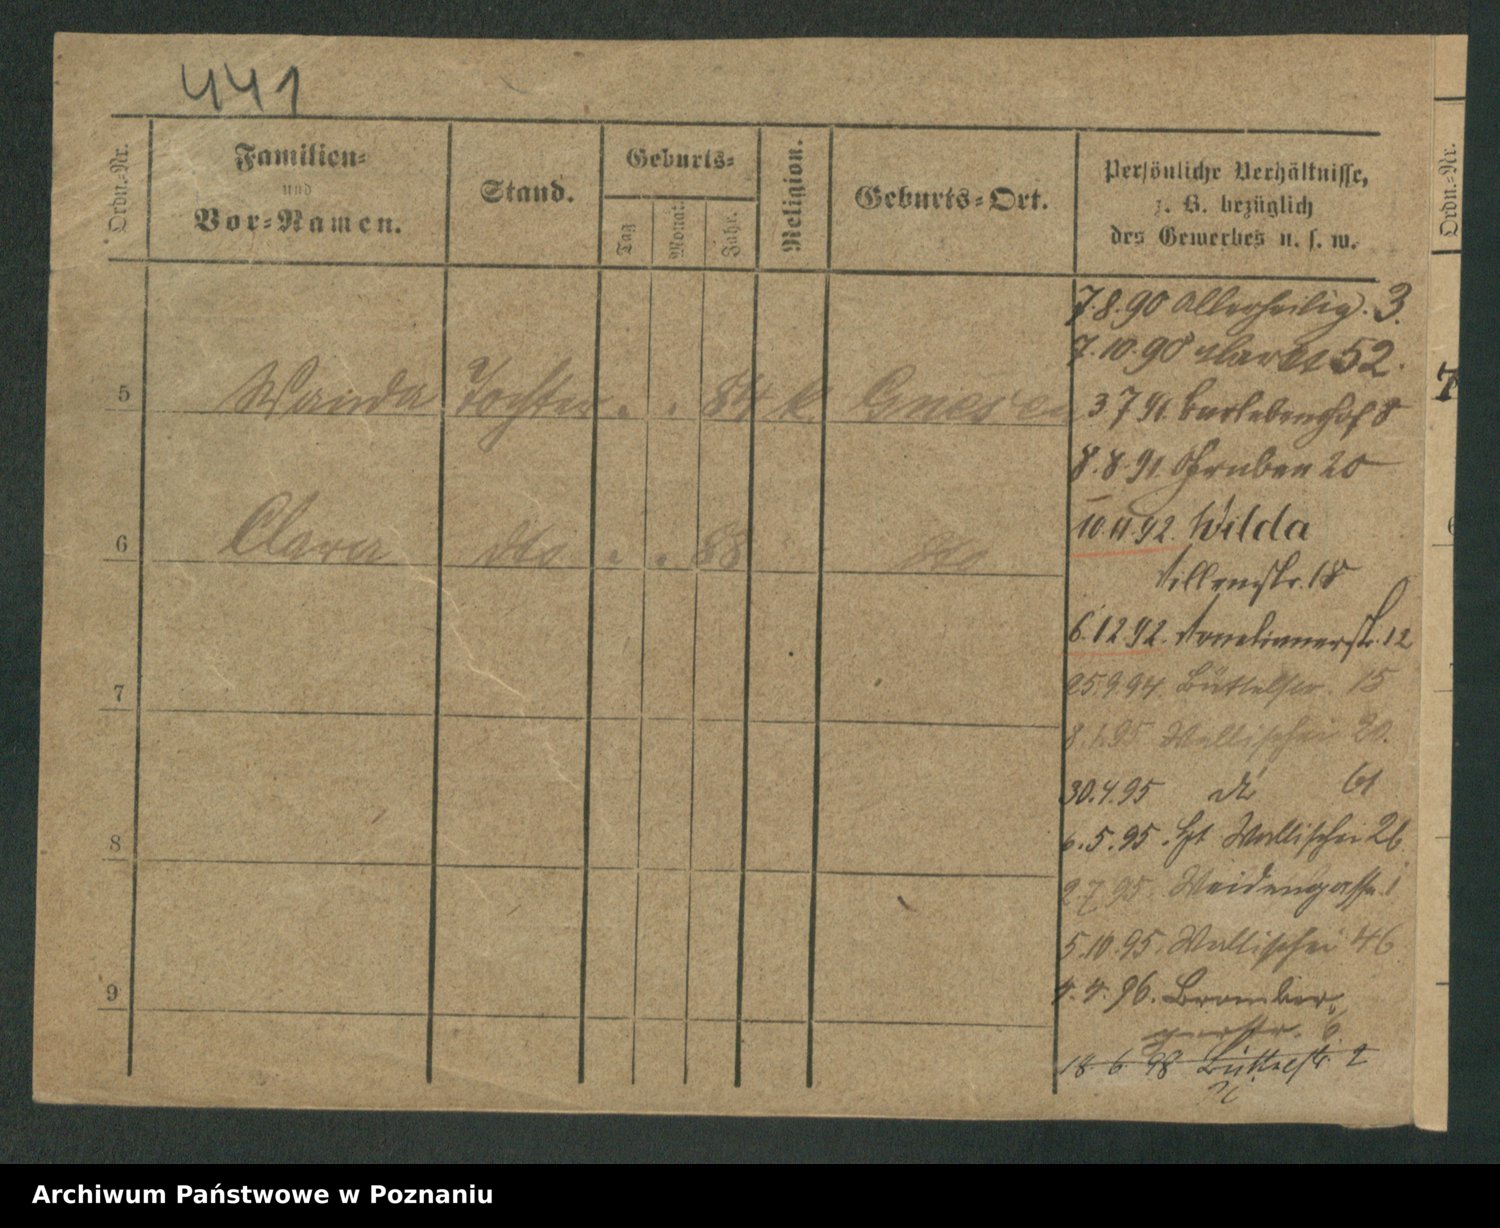 441
Ordn.-Nr.
Familien-
und
Vor-Namen.
Stand.
Geburts-
Tag
Monat
Jahr.
Religion.
Geburts-Ort.
Persönliche Verhältnisse,
z. B. bezüglich
des Gewerbes u. s. w.
Ordn.-Nr.
7.8.90 Allerheilig. 3.
7.10.90 Markt 52.
5 Wanda Tochter . . 84 k Gnesen
3 7 91. Carlebenshof 8
8.8.91. Gruben 20
10.11.92. Wilda
6 Clara dto . . 88 dto
18
6.12 92. 12
7
25.9.94. Büttelstr. 15
8.1.95 Wallischei 20.
30.4.95 dto 61
8
6.5.95. Wallischei 26.
2 7 95. Weidengasse 1
5.10.95. Wallischei 46
9
4.4.96. Bromber,
gerstr. 6
18 6 98 Büttelstr. 2
Archiwum Państwowe w Poznaniu